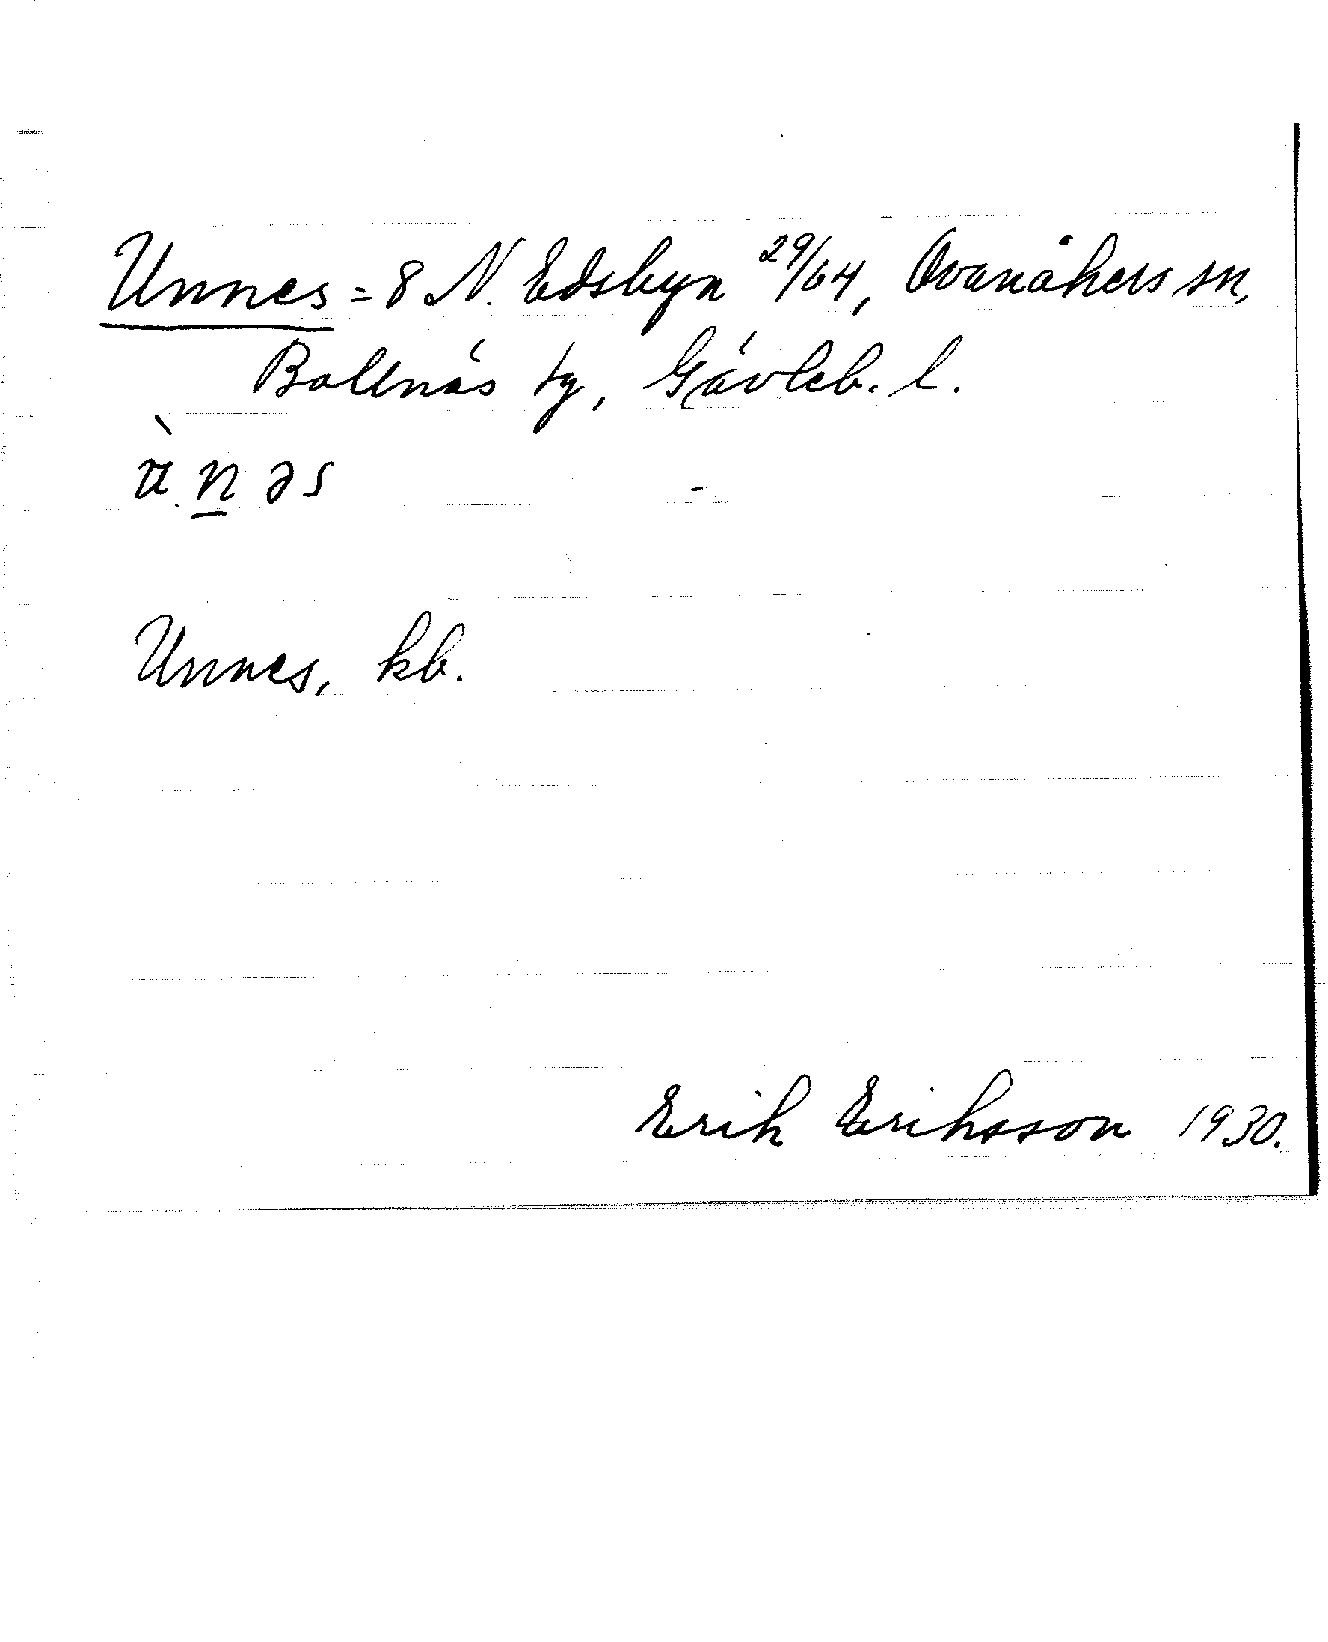 Unnes = 8 N. Edsbyn 29/64, Ovanåkers sn,
Bollnäs tg, Gävleb. l.
ù n̲ ə s
Unnes, kb.
Erik Eriksson 1930.